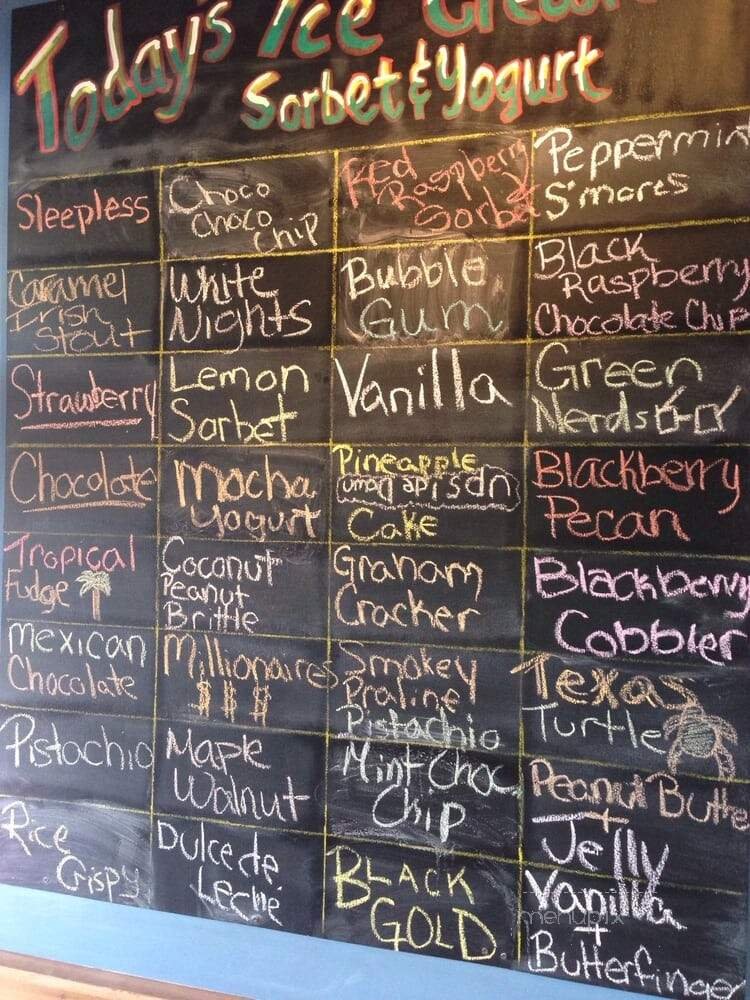 Today's Ice Cream
Sorbet & Yogurt
Sleepless
Caramel
Irish
Stout
Strawberry
Chocolate
Tropical
Fudge
Mexican
Chocolate
Pistachio
Rice
Crispy
Choco
Choco
Chip
White
Nights
Lemon
Sorbet
Mocha
Yogurt
Coconut
Peanut
Brittle
Millionaires
$ $ $
Maple
Walnut
Dulce de
Leche
Red
Raspberry
Sorbet
Bubble
Gum
Vanilla
Pineapple
upside down
Cake
Graham
Cracker
Smokey
Praline
Pistachio
Mint Choc
Chip
BLACK
GOLD
Peppermin
S'mores
Black
Raspberry
Chocolate Chip
Green
Nerds
Blackberry
Pecan
Blackberry
Cobbler
Texas
Turtle
Peanut Butte
+
Jelly
Vanilla
+
Butterfinge
menupix